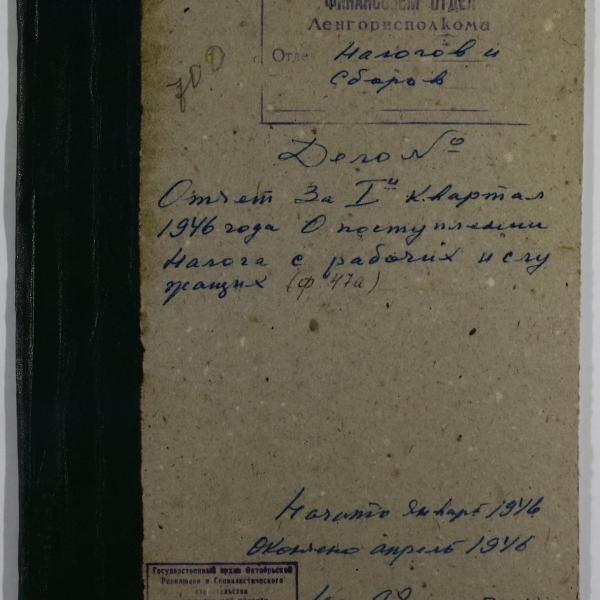 ФИНАНСОВЫЙ ОТДЕЛ
Ленгорисполкома
Отдел Налогов и
Сборов
700
Дело №
Отчет За I й квартал
1946 года О поступлении
Налога с рабочих и слу
жащих (ф. 47а)
Начато январь 1946
Окончено апрель 1946
Государственный архив Октябрьской
Революции и Социалистического
строительства